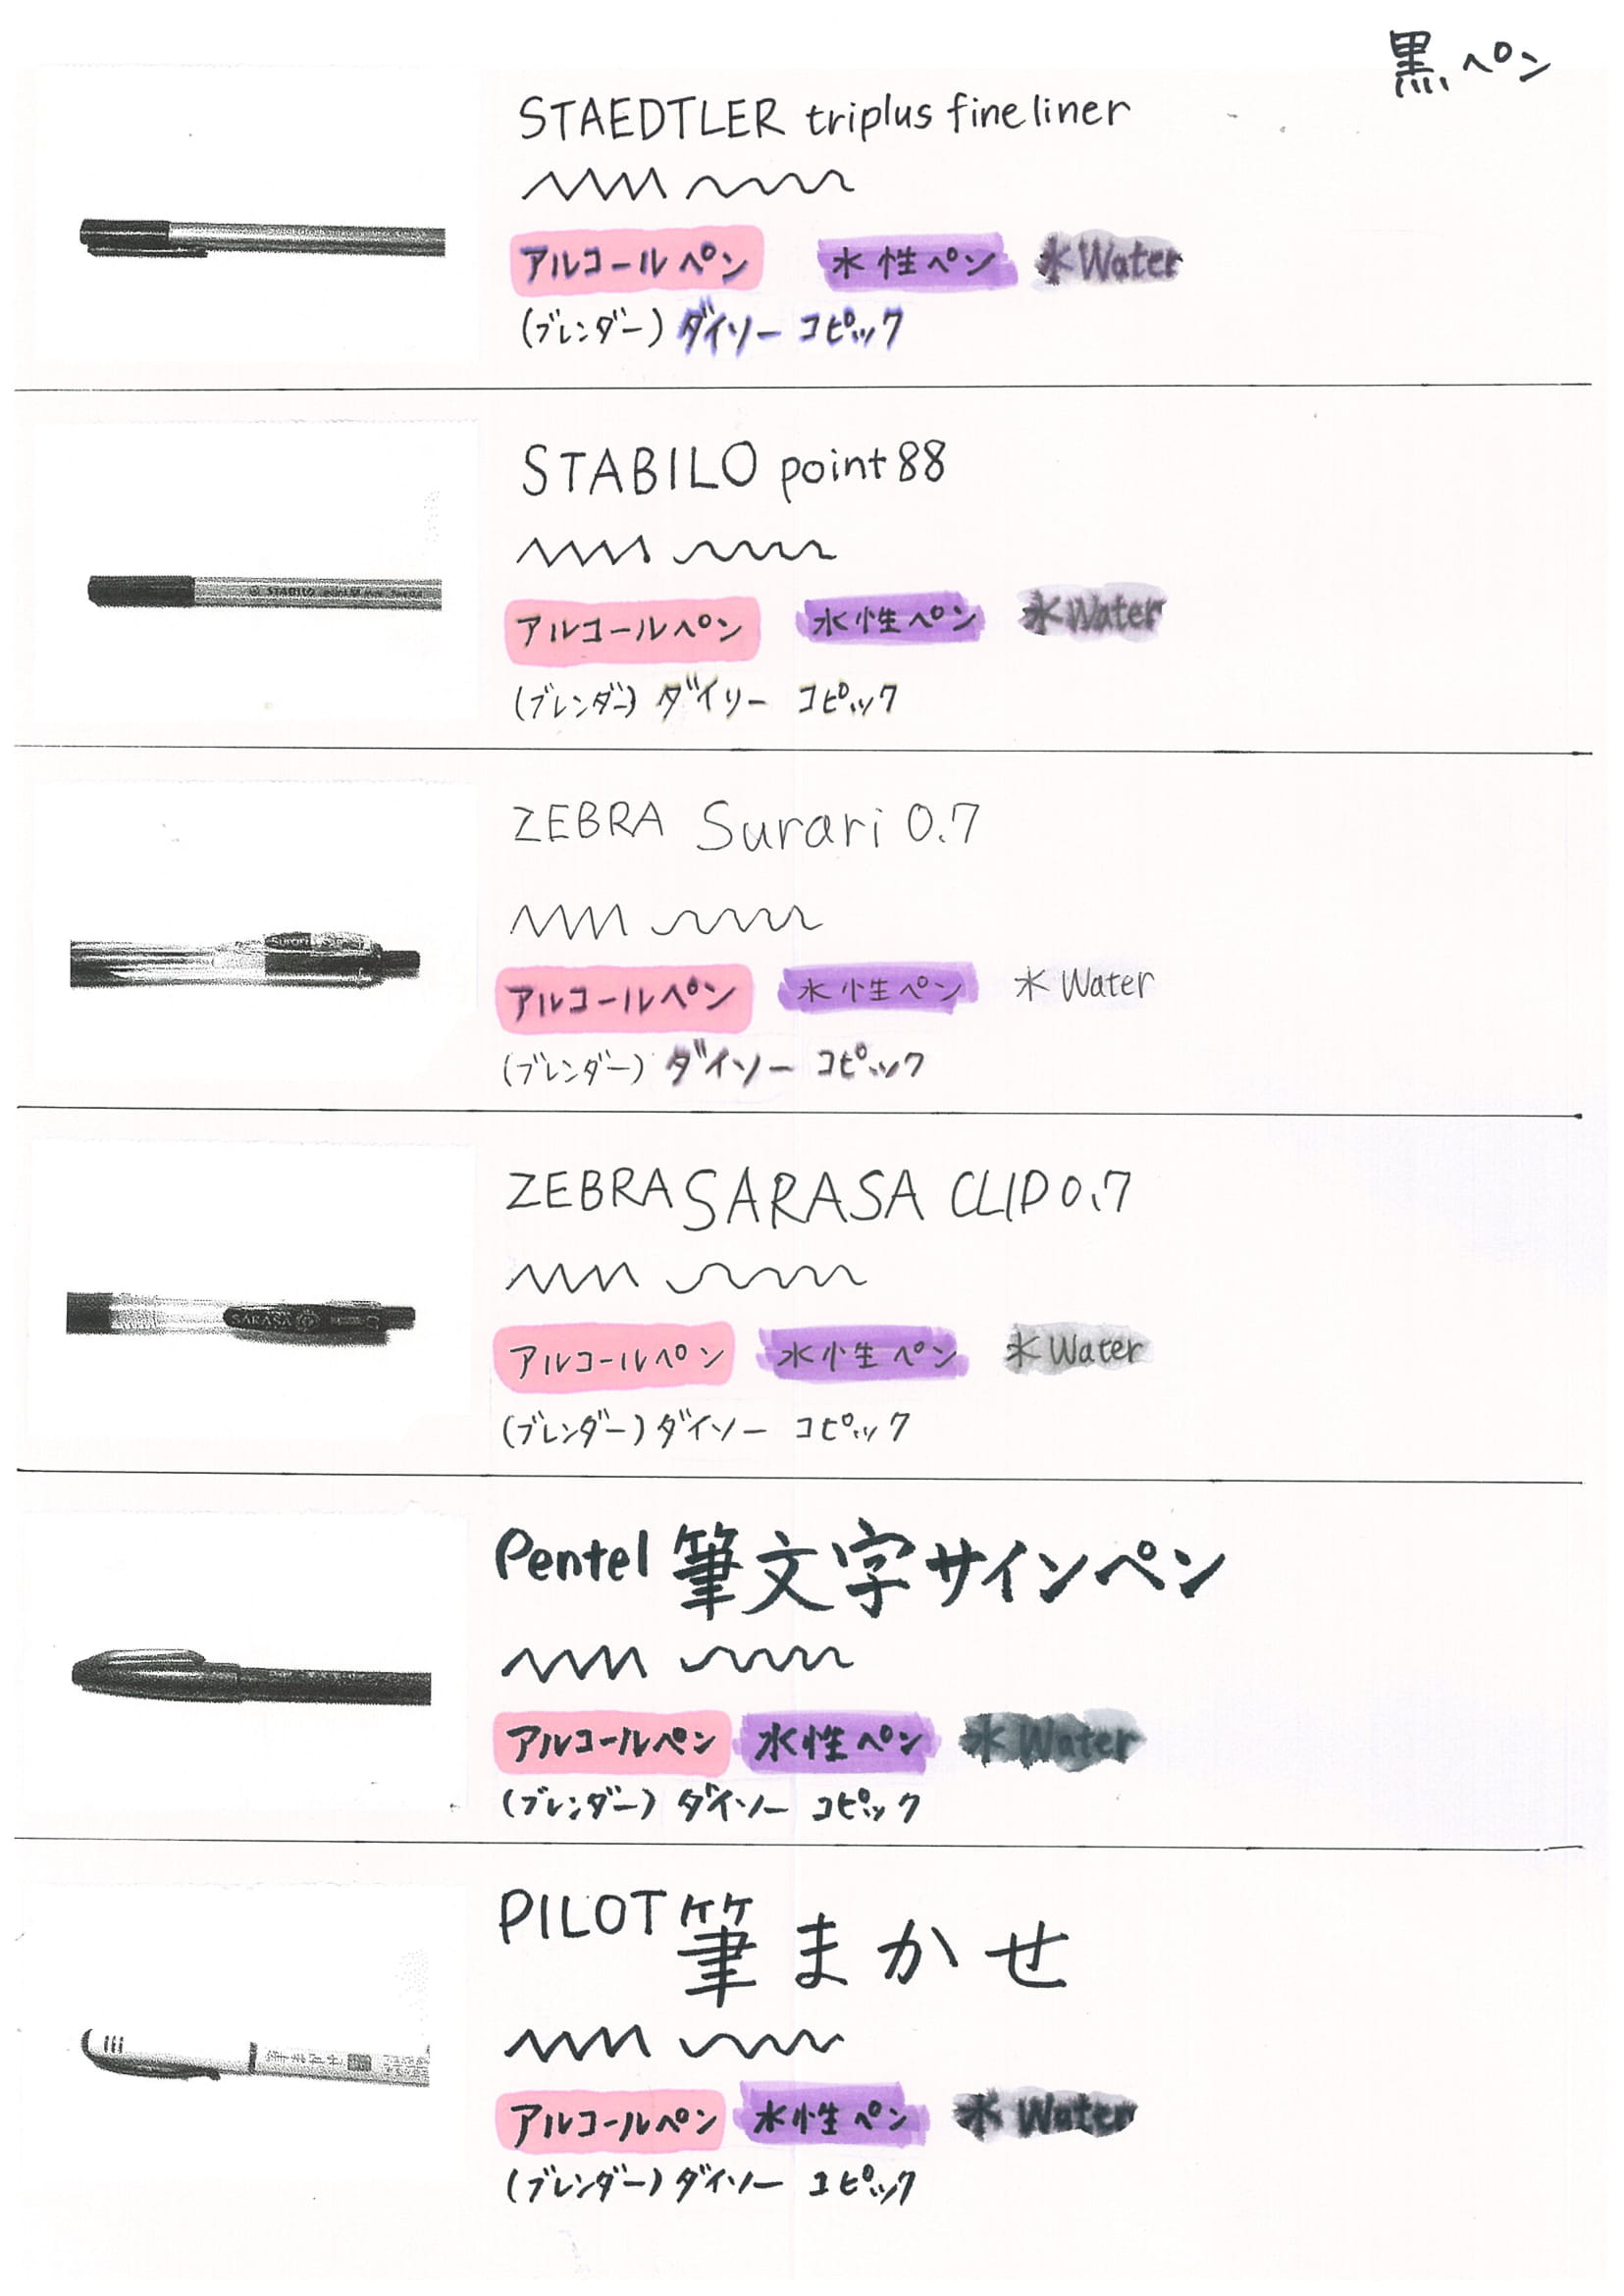 黒ペン
STAEDTLER triplus fineliner
アルコールペン 水性ペン 水 Water
(ブレンダー) ダイソー コピック
STABILO point 88
STABILO point 88
アルコールペン 水性ペン 水 Water
(ブレンダー) ダイソー コピック
ZEBRA Surari 0.7
Surari
アルコールペン 水性ペン 水 Water
(ブレンダー) ダイソー コピック
ZEBRA SARASA CLIP 0.7
SARASA
アルコールペン 水性ペン 水 Water
(ブレンダー) ダイソー コピック
Pentel 筆文字サインペン
アルコールペン 水性ペン 水 Water
(ブレンダー) ダイソー コピック
PILOT 筆まかせ
アルコールペン 水性ペン 水 Water
(ブレンダー) ダイソー コピック